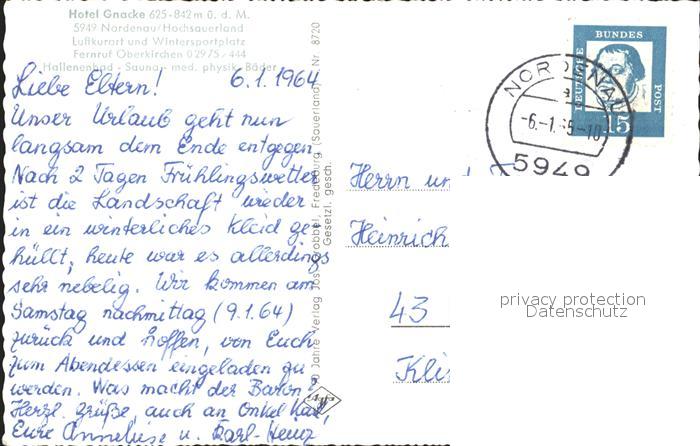 Hotel Gnacke 625-842 m ü. d. M.
5949 Nordenau/Hochsauerland
Luftkurort und Wintersportplatz
Fernruf Oberkirchen 02975 - 444
Hallenbad - Sauna - med. physik. Bäder
6.1.1964
Liebe Eltern!
Unser Urlaub geht nun
langsam dem Ende entgegen.
Nach 2 Tagen Frühlingswetter
ist die Landschaft wieder
in ein winterliches Kleid ge-
hüllt, heute war es allerdings
sehr nebelig. Wir kommen am
Samstag nachmittag (9.1.64)
zurück und hoffen, von Euch
zum Abendessen eingeladen zu
werden. Was macht der Baron?
Herzl. Grüße, auch an Onkel Karl,
Eure Anneliese u. Karl-Heinz
Jahre Verlag Jos. Grobbel, Fredeburg (Sauerland) Nr. 8720
Gesetzl. gesch.
Agfa
DEUTSCHE BUNDES POST
15
NORDENAU
-6.-1.65-10
5949
Herrn un
Heinrich
43
Kli
privacy protection
Datenschutz